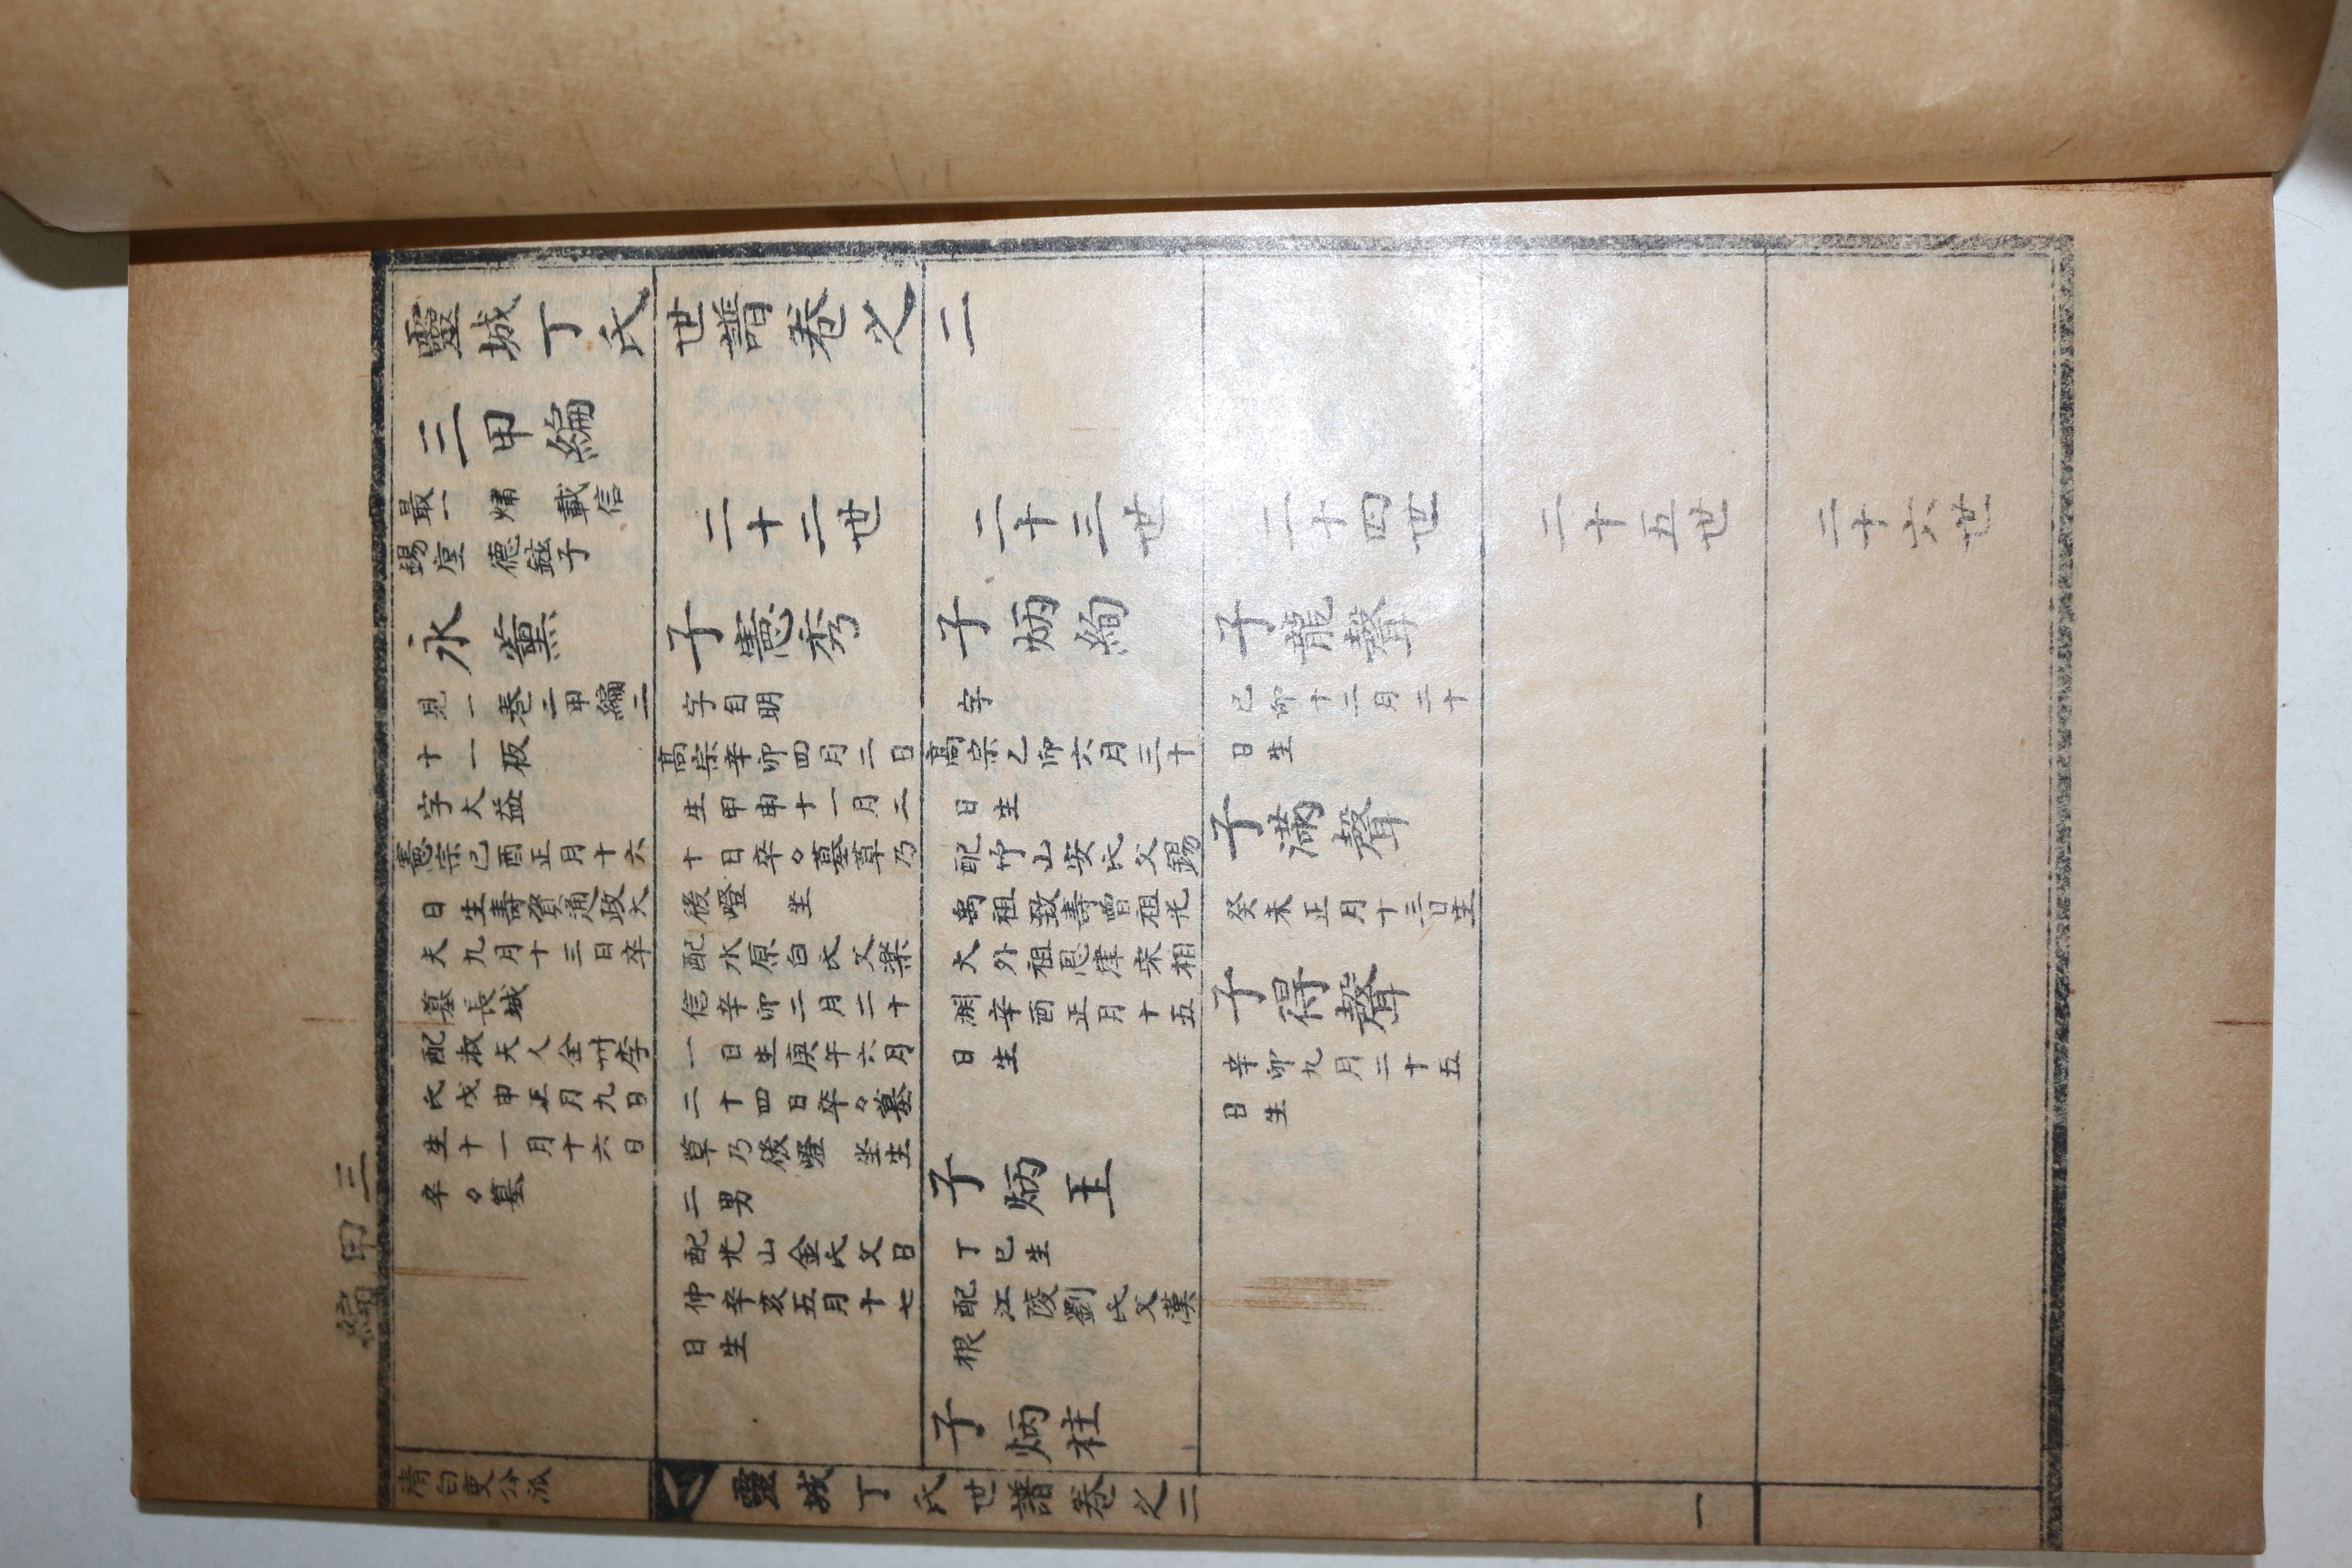 三甲編
靈城丁氏世譜卷之二
三甲編
最一 㷌 載信
錫堂 德鉉子
永薰
見一卷二甲編二
十一板
字大益
憲宗己酉正月十六
日生壽資通政大
夫九月十三日卒
墓長城
配淑夫人全州李
氏戊申正月九日
生十一月十六日
卒々墓
二十二世
子憲秀
字自明
高宗辛卯四月二日
生甲申十一月二
十日卒々墓草乃
後嶝 坐
配水原白氏父樂
信辛卯二月二十
一日生庚午六月
二十四日卒々墓
草乃後嶝 坐生
二男
配光山金氏父日
仲辛亥五月十七
日生
二十三世
子炳絢
字
高宗乙卯六月三十
日生
配竹山安氏父錫
禹祖致壽曾祖光
大外祖恩津宋相
渊辛酉正月十五
日生
子炳玉
丁巳生
配江陵劉氏父漢
根
子炳柱
二十四世
子龍聲
己卯十二月二十
日生
子滿聲
癸未正月十三日生
子得聲
辛卯九月二十五
日生
二十五世
二十六世
清白吏公派
靈城丁氏世譜卷之二
一